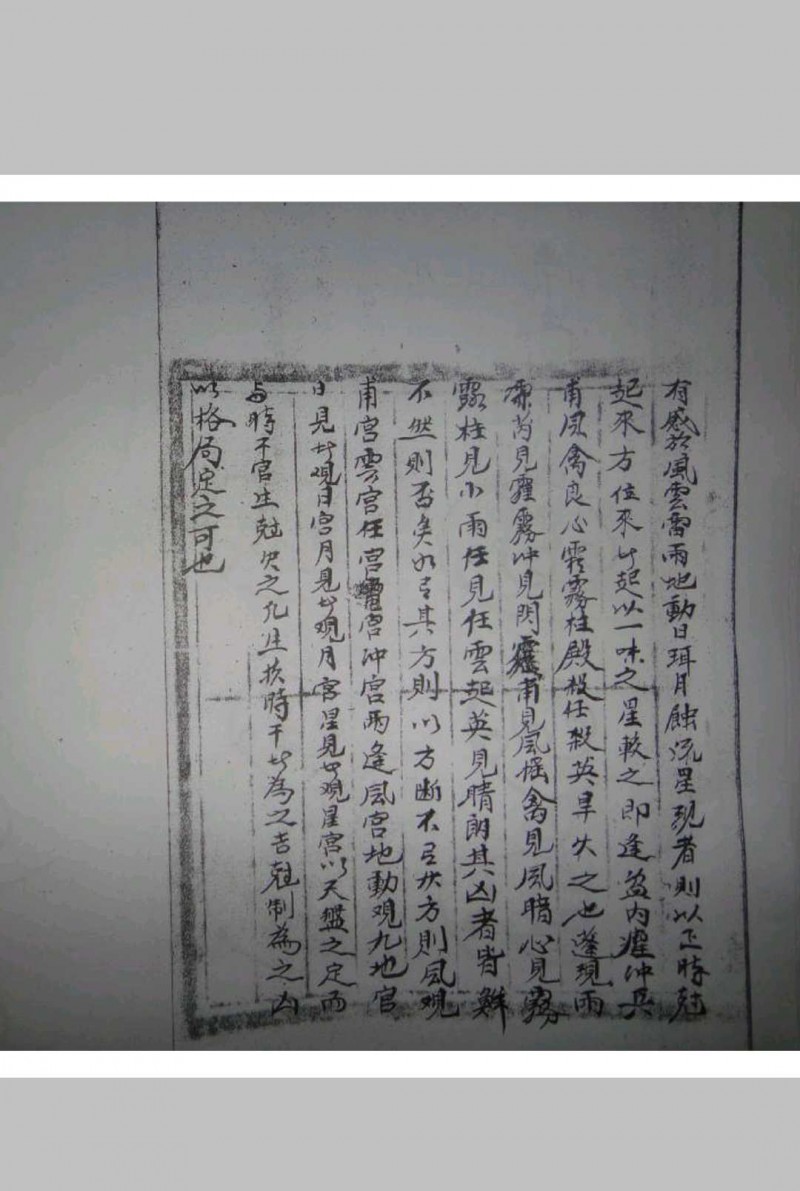 有感於風雲雷雨地動日珥月蝕流星現者則以正時尅
起來方位來此起以一味之星較之即逢盗內瘟冲兵
甫風禽良心霜霧柱殿殺任殺英旱火之也蓬現雨
芮見霾霧冲見閃甫見風搖禽見風暗心見霧
露柱見小雨任見任雲起英見晴朗其凶者皆鮮
不然則否矣如其方則以方斷不方則風觀
甫宮雲宮任宮雷宮冲宮雨逢風宮地動觀九地宮
日見此觀日宮月見此觀月宮星見此觀星宮以天盤之定而
与時干宮生尅欠之凡生扶時干此為之吉尅制為之凶
以格局定之可也